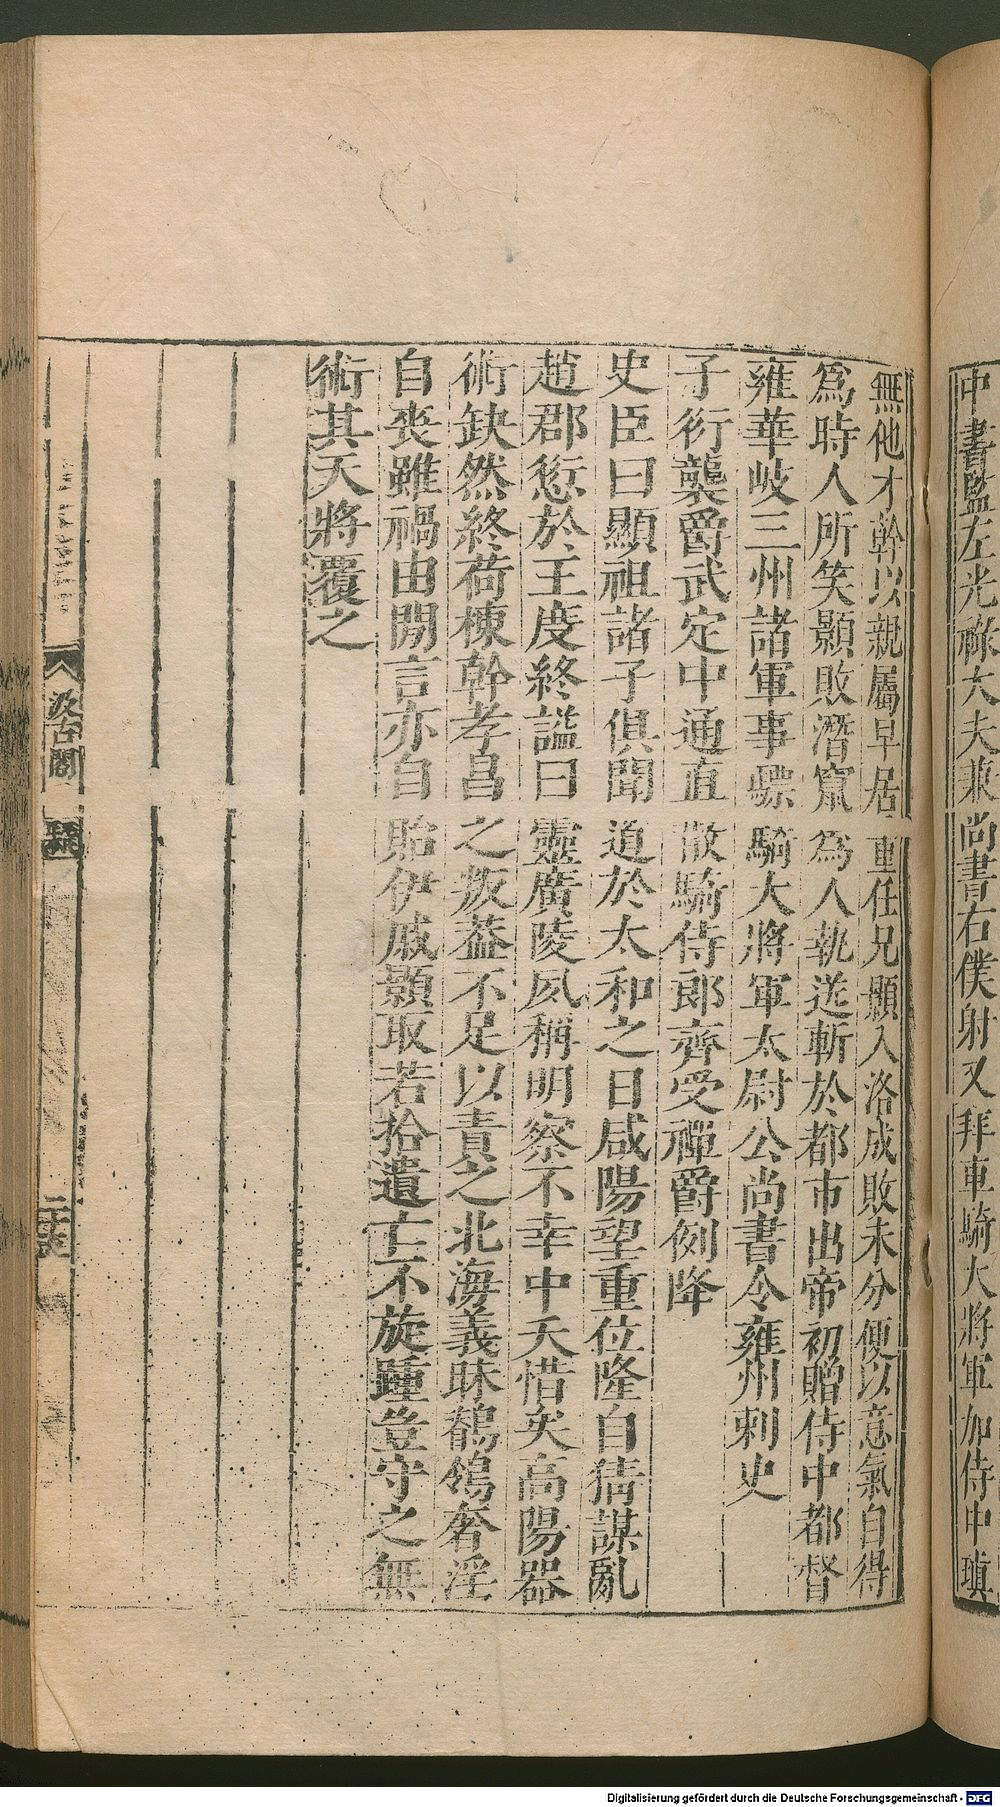 中書監左光祿大夫兼尚書右僕射又拜車騎大將軍加侍中瑱
無他才幹以親屬早居重任兄顥入洛成敗未分便以意氣自得
爲時人所笑顥敗潛竄爲人執送斬於都市出帝初贈侍中都督
雍華岐三州諸軍事驃騎大將軍太尉公尚書令雍州刺史
子衍襲爵武定中通直散騎侍郎齊受禪爵例降
史臣曰顯祖諸子俱聞道於太和之日咸陽望重位隆自猜謀亂
趙郡愆於王度終謚曰靈廣陵夙稱明察不幸中夭惜矣高陽器
術缺然終荷棟幹孝昌之叛蓋不足以責之北海義昧鶺鴒奢淫
自喪雖禍由閒言亦自貽伊戚顥取若拾遺亡不旋踵豈守之無
術其天將覆之
汲古閣
Digitalisierung gefördert durch die Deutsche Forschungsgemeinschaft - DFG